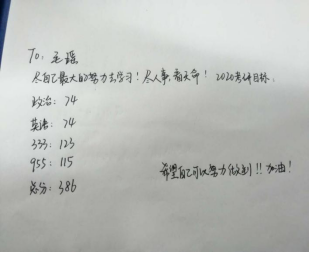 To: 王瑶
尽自己最大的努力去学习！尽人事，看天命！ 2020考研目标：
政治：74
英语：74
333：123
955：115
总分：386
希望自己可以努力做到!! 加油！